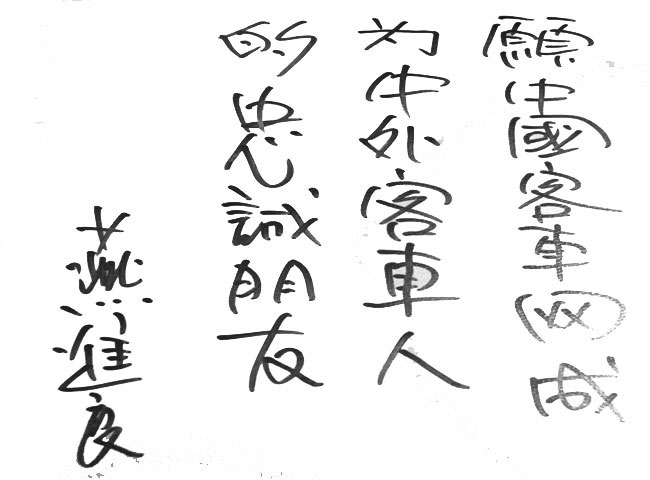 願中國客車网成
为中外客車人
的忠誠朋友
燕進良